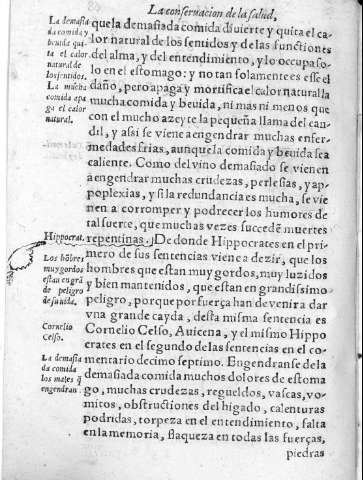 La conseruacion de la salud,
La demasia
da comida y
beuida qui-
ta el calor
natural de
los sentidos.
La mucha
comida apa
ga el calor
natural.
Hippocrat.
Los hõbres
muy gordos
estan en grã
de peligro
de su vida.
Cornelio
Celso.
La demasia
da comida
los males q̃
engendran.
que la demasiada comida diuierte y quita el ca-
lor natural de los sentidos y de las functiones
del alma, y del entendimiento, y lo occupa so-
lo en el estomago: y no tan solamente es esse el
daño, pero apaga y mortifica el calor natural la
mucha comida y beuida, ni mas ni menos que
con el mucho azeyte la pequeña llama del can-
dil, y assi se viene a engendrar muchas enfer-
medades frias, aunque la comida y beuida sea
caliente. Como del vino demasiado se vienen
a engendrar muchas crudezas, perlesias, y ap-
poplexias, y si la redundancia es mucha, se vie-
nen a corromper y podrecer los humores de
tal suerte, que muchas vezes succedẽ muertes
repentinas. De donde Hippocrates en el pri-
mero de sus sentencias viene a dezir, que los
hombres que estan muy gordos, muy luzidos
y bien mantenidos, que estan en grandissimo
peligro, porque por fuerça han de venir a dar
vna grande cayda, desta misma sentencia es
Cornelio Celso, Auicena, y el mismo Hippo
crates en el segundo de las sentencias en el co-
mentario decimo septimo. Engendranse de la
demasiada comida muchos dolores de estoma
go, muchas crudezas, regueldos, vascas, vo-
mitos, obstructiones del higado, calenturas
podridas, torpeza en el entendimiento, falta
en la memoria, flaqueza en todas las fuerças,
piedras